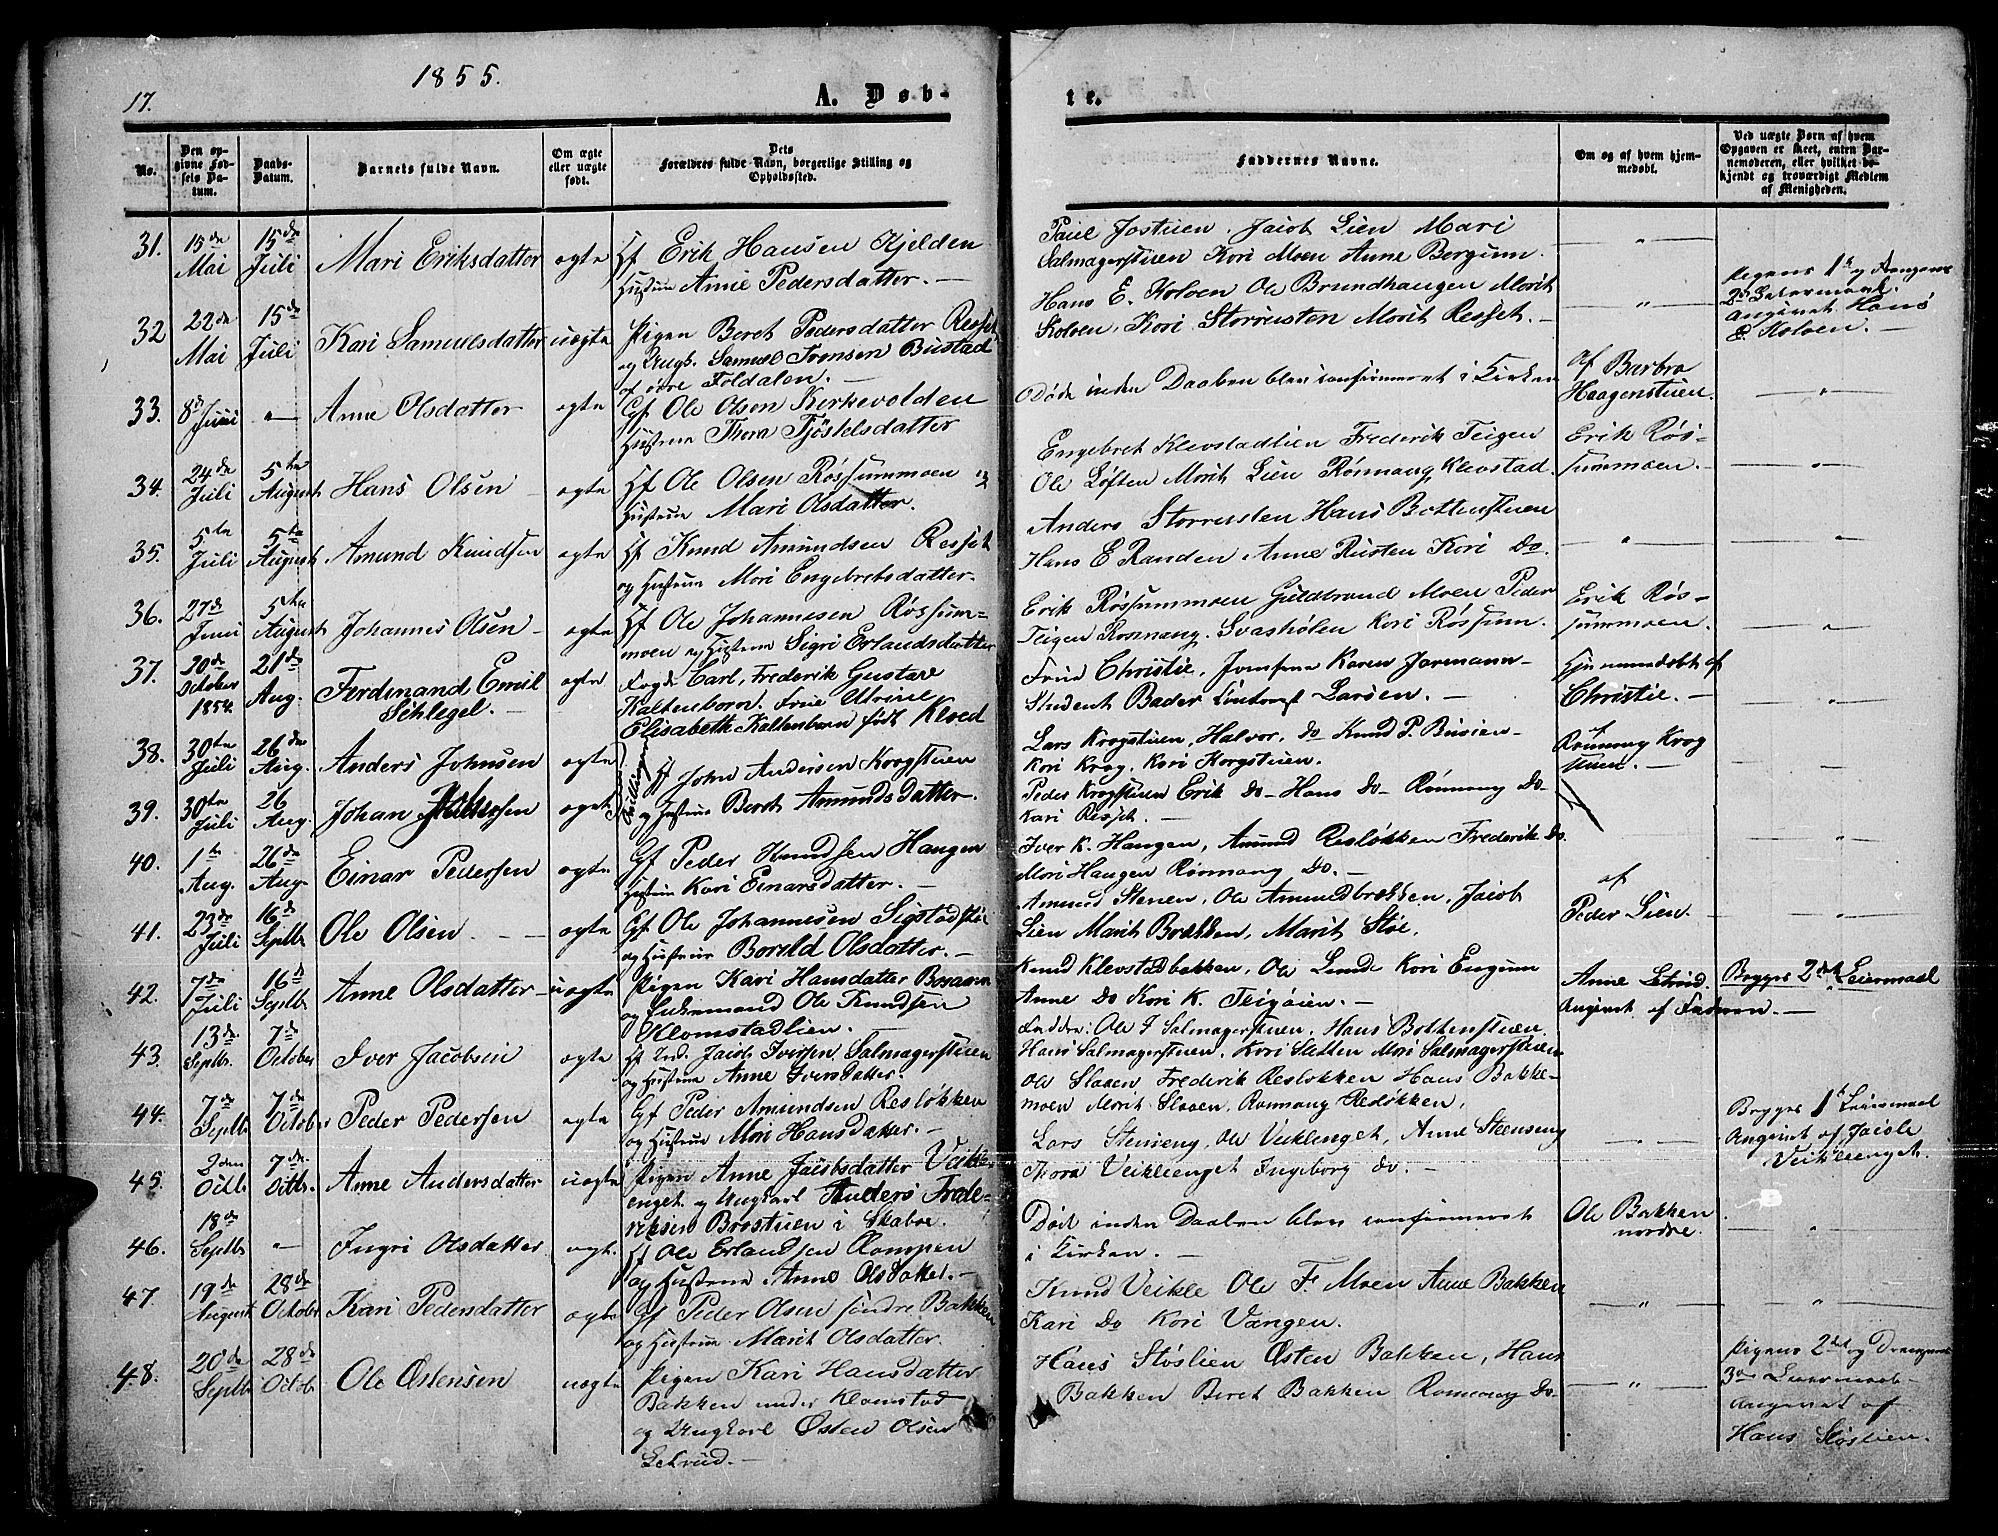 1855.
17.
A. Døb-
te.
No.
Den opgivne Fødsels Datum.
Daabs-Datum.
Barnets fulde Navn.
Om ægte eller uægte født.
Dets Forældres fulde Navn, borgerlige Stilling og Opholdssted.
Faddernes Navne.
Om og af hvem hjemmedøbt.
Ved uægte Børn af hvem Opgaven er skeet, enten Barnemoderen, eller hvilket bekjendt og troværdigt Medlem af Menigheden.
31. 15de Mai 15de Juli Mari Eriksdatter ægte Gf Erik Hansen Kjelden
Hustrue Anne Pedersdatter. —
Paul Jostuen. Jacob Lien Mari
Salmagerstuen Kari Moen Anne Bergum.
32 22de Mai 15de Juli Kari Samuelsdatter uægte Pigen Beret Pedersdatter Resset
og Ungk. Samuel Tronsen Bustad
af øvre Foldalen. —
Hans E. Kolven Ole Brundhaugen Marit
Kolven, Kari Storrusten Marit Resset. —
Pigens 1ste og
2det Leiermaal.
angivet Hans
E. Kolven. —
33. 8de Juni " Anne Olsdatter ægte Gf. Ole Olsen Kirkevolden
Hustrue Thora Tjøstelsdatter
Døde inden Daaben blev confirmeret i Kirken
af Barbro
Haagenstuen.
34. 24de Juli 5te August Hans Olsen ægte Hf Ole Olsen Røssummoen og
Hustrue Mari Olsdatter.
Engebret Klevstadlien Frederik Teigen
Ole Løften Marit Lien Rønnaug Klevstad.
Erik Røs-
summoen. —
35. 5te Juli 5te August Amund Knudsen ægte Hf Knud Amundsen Resset
og Hustrue Mari Engebretsdatter.
Anders Storrusten Hans Bottenstuen
Hans E Randen Anne Rusten Kari Do.
36. 27de Juni 5te August Johannes Olsen ægte Hf Ole Johannesen Røssum-
moen og Hustrue Sigri Erlandsdatter
Erik Røssummoen Guldbrand Moen Peder
Teigen Rønnaug Svashølen Kari Røssum.
Erik Røs-
summoen.
37. 20de October 1854. 21de Aug. Ferdinand Emil
Schlegel. —
ægte Fogde Carl, Frederik Gustav
Kaltenborn. Frue
Elisabeth Kaltenborn født Klved
Frue Christie, Jomfrue Karen Jarmann
Student Bader Larsen. —
Hjemmedøbt af
Christie. —
38. 30te Juli 26de Aug. Anders Johnsen ægte
Hf John Andersen Krogstuen
og Hustrue Beret Amundsdatter.
Tvillinger
Lars Krogstuen, Halvor Do Knud P. Busien
Kari Krog. Kari Krogstuen.
af
Rønnaug Krog
stuen. —
39. 30te Juli 26 Aug. Johan Johnsen ægte
Peder Krogstuen Erik Do — Hans Do — Rønnaug Do.
Kari Resset. —
40. 1te Aug. 26de Aug. Einar Pedersen ægte Gf Peder Knudsen Haugen
Hustrue Kari Einarsdatter. —
Iver K. Haugen, Amund Resløkken Frederik Do.
Mari Haugen Rønnaug Do. —
41. 23de Juli 16de Septbr Ole Olsen. ægte Gf Ole Johannesen Sigstadstøe
og Hustrue Borild Olsdatter. —
Amund Stenen, Ole Amundbrækken, Jacob
Lien Marit Brækken, Marit Støe.
af
Peder Lien.
42. 7de Juli 16de Septbr Anne Olsdatter uægte Pigen Kari Hansdatter
og Enkemand Ole Knudsen
Klomstadlien. —
Knud Klevstadbakken, Ole Lunde Kari Engum
Anne Do Kari K. Teigøien. —
Anne Letrud
Angivet af Faderen. —
Begges 2det Leiermaal
43. 13de Septbr. 7de October Iver Jacobsen ægte Hf Ind. Jacob Iversen Salmagerstuen
og Hustrue Anne Iversdatter.
Faddre: Ole J Salmagerstuen. Hans Bottenstuen.
Hans Salmagerstuen. Kari Sletten Mari Salmagerstuen
44. 7de Septbr 7de October Peder Pedersen ægte Gf Peder Amundsen Resløkken
og Hustrue Mari Hansdatter. —
Ole Slaaen Frederik Resløkken Hans Bakke-
moen Marit Slaaen, Rønnaug Resløkken.
45. 2den Octbr 7de Octbr. Anne Andersdatter uægte Pigen Anne Jacobsdatter Veikle-
enget og Ungkarl Anders Frede-
riksen Brostuen i Skaboe.
Lars Steineng, Ole Veiklenget, Anne Steenseng
Thora Veiklenget Ingeborg Do. —
Begges 1te Leiermaal
Angivet af Jacob
Veiklenget.
46. 18de Septbr " Ingri Olsdatter. ægte. Hf Ole Erlandsen Rompen
og Hustrue Anne Olsdatter. —
Død inden Daaben blev confirmeret
i Kirken. —
Ole Bakken
nordre.
47. 19de August 28de October Kari Pedersdatter ægte Gf Peder Olsen søndre Bakken
og Hustrue Marit Olsdatter.
Knud Veikle Ole F. Moen Anne Bakken
Kari Do Kari Vangen.
48. 20de Septbr 28de Octob. Ole Østensen uægte Pigen Kari Hansdatter
Bakken under Klomstad
og Ungkarl Østen Olsen
Letrud. —
Hans Støslien Østen Bakken, Hans
Bakken Beret Bakken Rønnaug Do.
Pigens 2det og Drengens
3die Leiermaal
Angivet af
Hans Støslien.